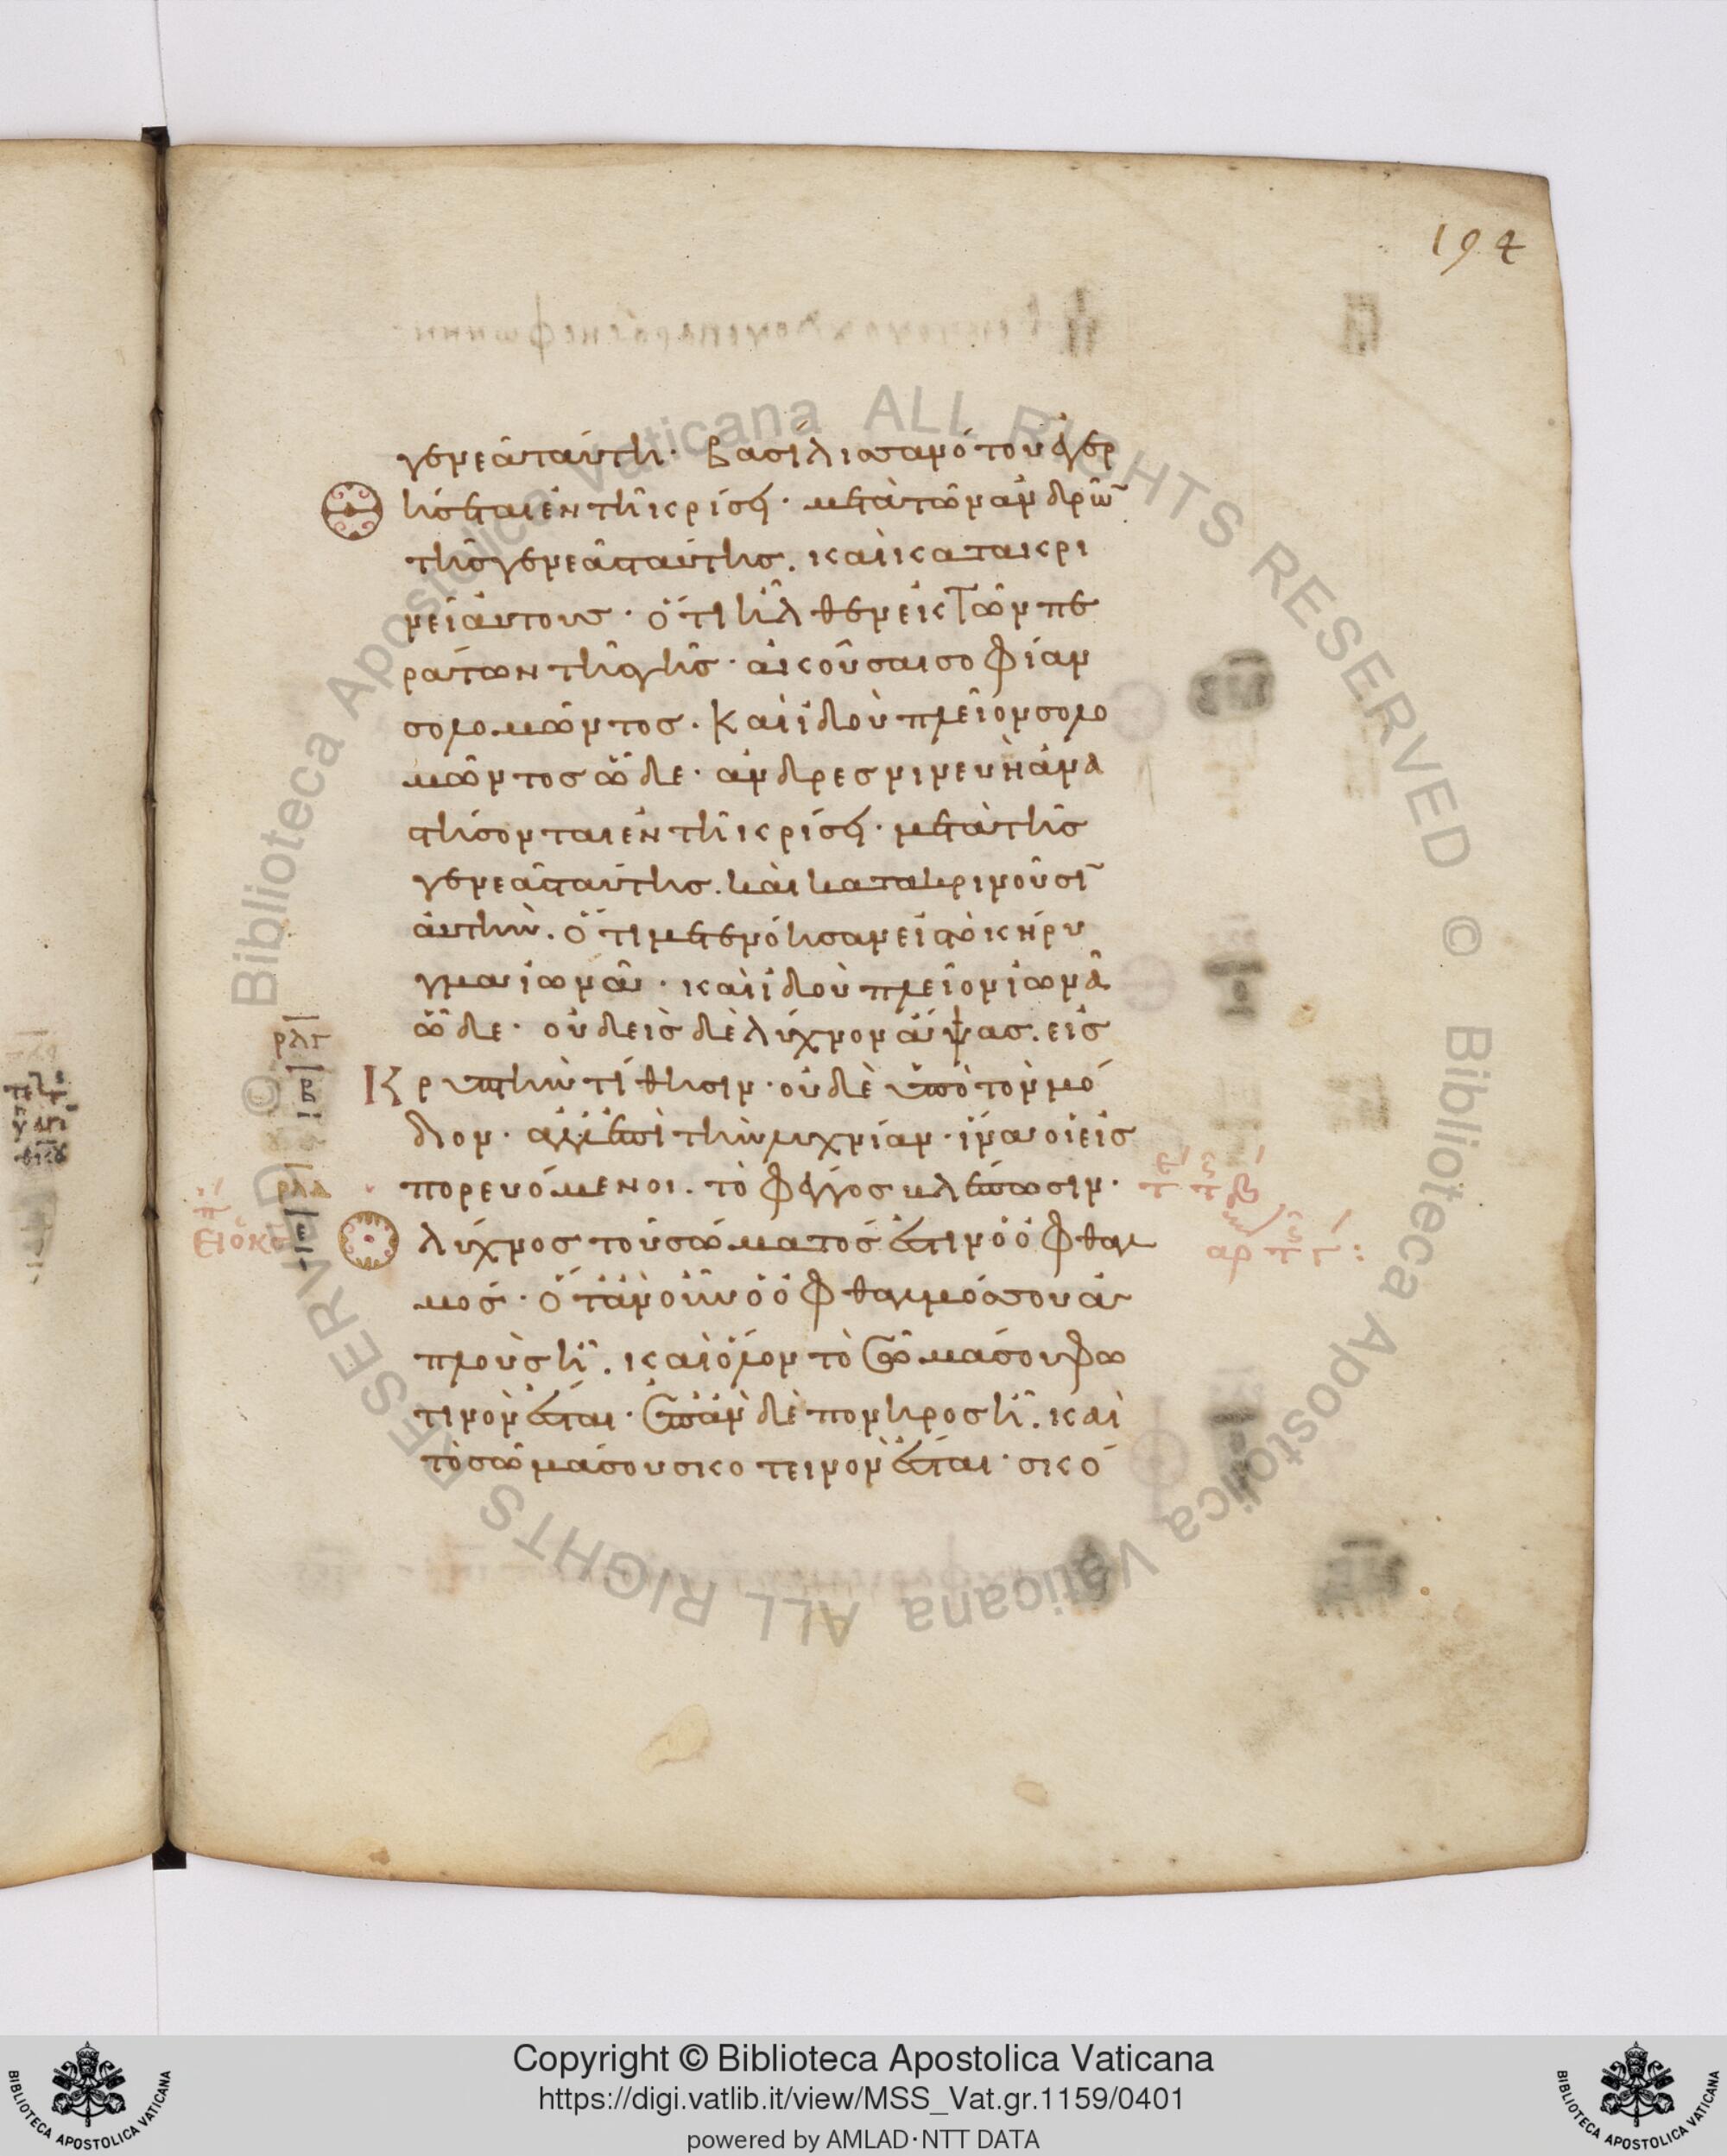 194
γενεᾶ ταύτη· Βασίλισσα νότου ἐγερ
θήσεται ἐν τῆ κρίσει· μετὰ τῶν ἀνδρῶ̄
τῆς γενεᾶς ταύτης. καὶ κατακρι
νεῖ αὐτούς· ὅτι ἦλθεν ἐκ τῶν πε
ράτων τῆς γῆς· ἀκοῦσαι σοφίαν
σολομῶντος· καὶ ἰδοὺ πλεῖον σολο
μῶντος ὧδε· ἄνδρες νινευὴ ἀνα
στήσονται ἐν τῆ κρίσει· μετὰ τῆς
γενεᾶς ταύτης. καὶ κατακρινοῦσῑ
αὐτήν. ὅτι μετενόησαν εἰς τὸ κήρυ
γμα ἰωνᾶ· καὶ ἰδοὺ πλεῖον ἰωνᾶ
ὧδε· οὐδεὶς δὲ λύχνον ἅψας. εἰς
ρλγ
Κρυπτὴν τίθησιν· οὐδὲ ὑπὸ τὸν μό
διον· ἀλλ' ἐπὶ τὴν λυχνίαν· ἵνα οἱ εἰσ
ρλδ
πορευόμενοι. τὸ φέγγος βλέπωσιν·
λύχνος τοῦ σώματός ἐστιν ὁ ὀφθαλ
μός· ὅταν οὖν ὁ ὀφθαλμός σου ἁ
πλοὺς ἦ. καὶ ὅλον τὸ σῶμά σου φω
τινὸν ἔσται· ἐπὰν δὲ πονηρος ἦ. καὶ
τὸ σῶμά σου σκοτεινὸν ἔσται· σκό
Biblioteca Apostolica Vaticana ALL RIGHTS RESERVED © Biblioteca Apostolica Vaticana ALL RIGHTS RESERVED ©
BIBLIOTECA APOSTOLICA VATICANA
Copyright © Biblioteca Apostolica Vaticana
https://digi.vatlib.it/view/MSS_Vat.gr.1159/0401
powered by AMLAD·NTT DATA
BIBLIOTECA APOSTOLICA VATICANA